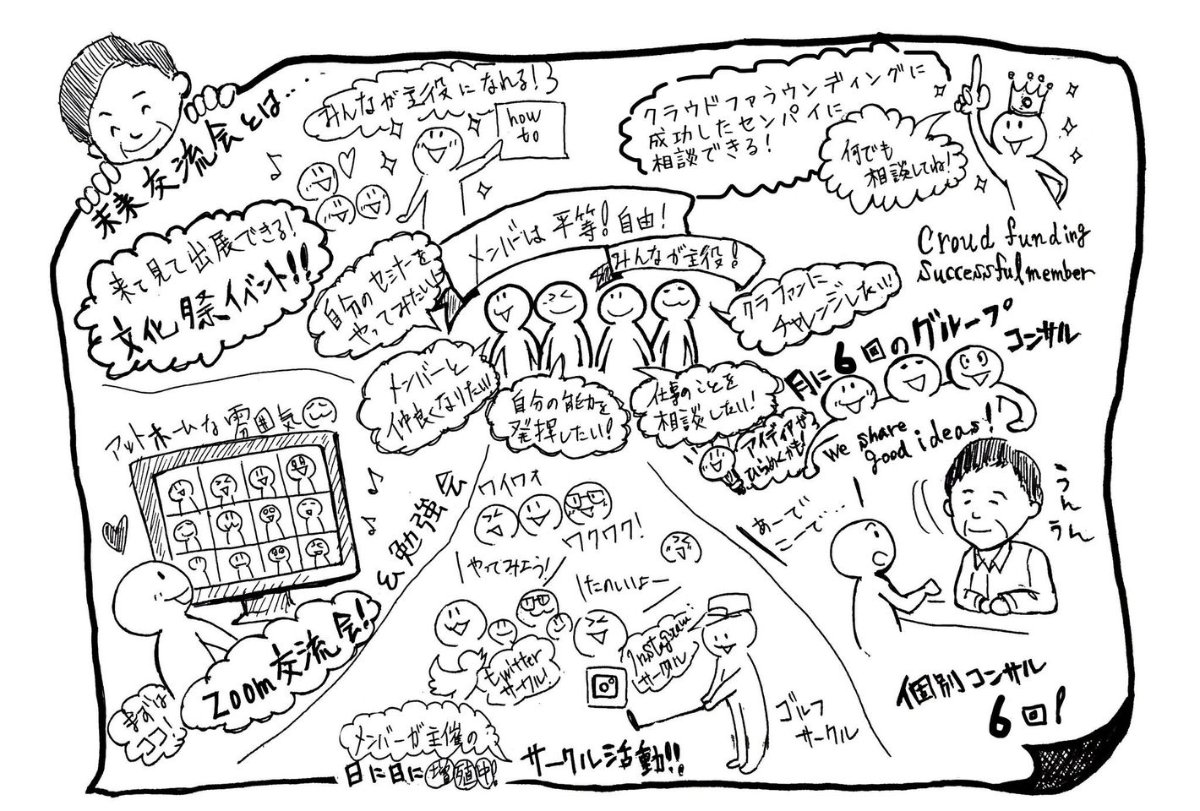 未来交流会とは…
みんなが主役になれる!
how
to
クラウドファウンディングに
成功したセンパイに
相談できる!
何でも
相談してね!
Croud funding
successful member
来て見て出展できる!
文化祭イベント!!
メンバーは平等!自由!
みんなが主役!
自分のセミナーを
やってみたい!
クラファンに
チャレンジしたい!
メンバーと
仲良くなりたい!
自分の能力を
発揮したい!
仕事のことを
相談したい!
月に6回のグループ
コンサル
アイディアや
ひらめくかも!
we share
good ideas!
アットホームな雰囲気
Zoom交流会!
&勉強会
まずは
ココ!
ワイワイ
ワクワク!
やってみよう!
たのしいよー
twitter
サークル!
Instagram
サークル
ゴルフ
サークル
メンバーが主催の
日に日に増殖中!
サークル活動!!
あーで
こーで…
うんうん
個別コンサル
6回!